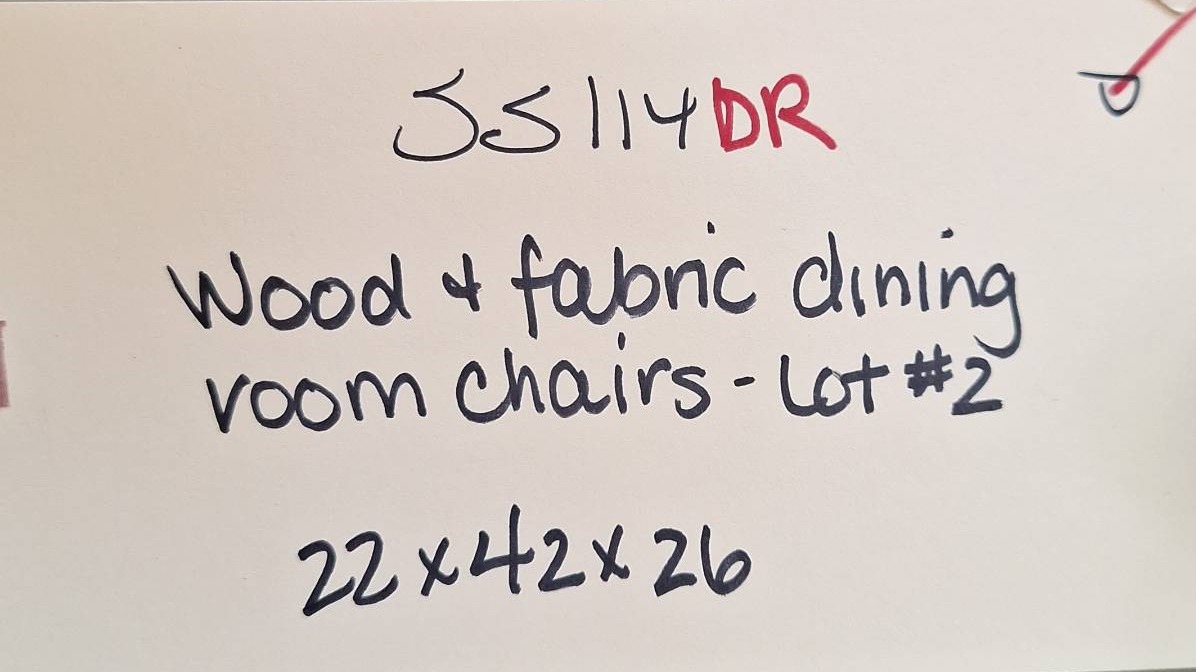 SS114DR
Wood & fabric dining
room chairs - Lot #2
22x42x26